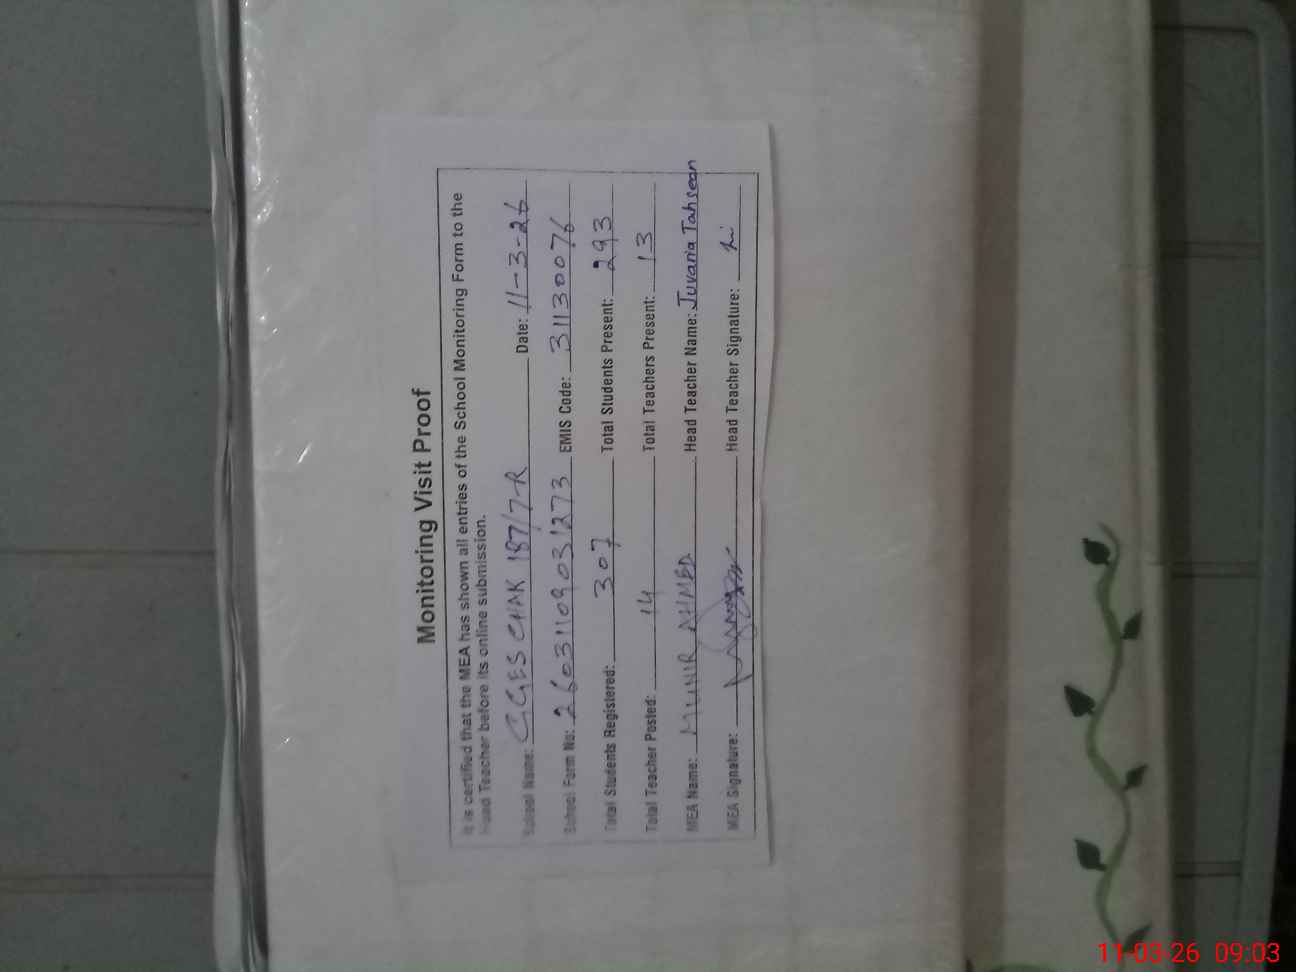 Monitoring Visit Proof
It is certified that the MEA has shown all entries of the School Monitoring Form to the
Head Teacher before its online submission.
School Name: GGES CHAK 187/7-R Date: 11-3-26
School Form No: 26031109031273 EMIS Code: 31130076
Total Students Registered: 307 Total Students Present: 293
Total Teacher Posted: 14 Total Teachers Present: 13
MEA Name: MUNIR AHMED Head Teacher Name: Juvaria Tahseen
MEA Signature: Head Teacher Signature:
11-03-26 09:03